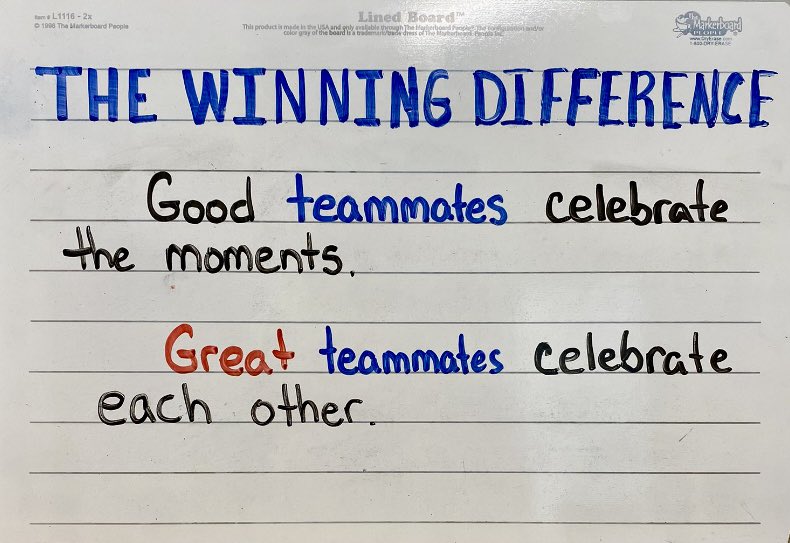 Item # L1116 - 2x
© 1998 The Markerboard People
Lined Board™
This product is made in the USA and only available through The Markerboard People. The configuration and/or
color gray of the board is a trademark/trade dress of The Markerboard People Inc.
The Markerboard
PEOPLE
www.DryErase.com
1-800-DRY-ERASE
THE WINNING DIFFERENCE
Good teammates celebrate
the moments.
Great teammates celebrate
each other.